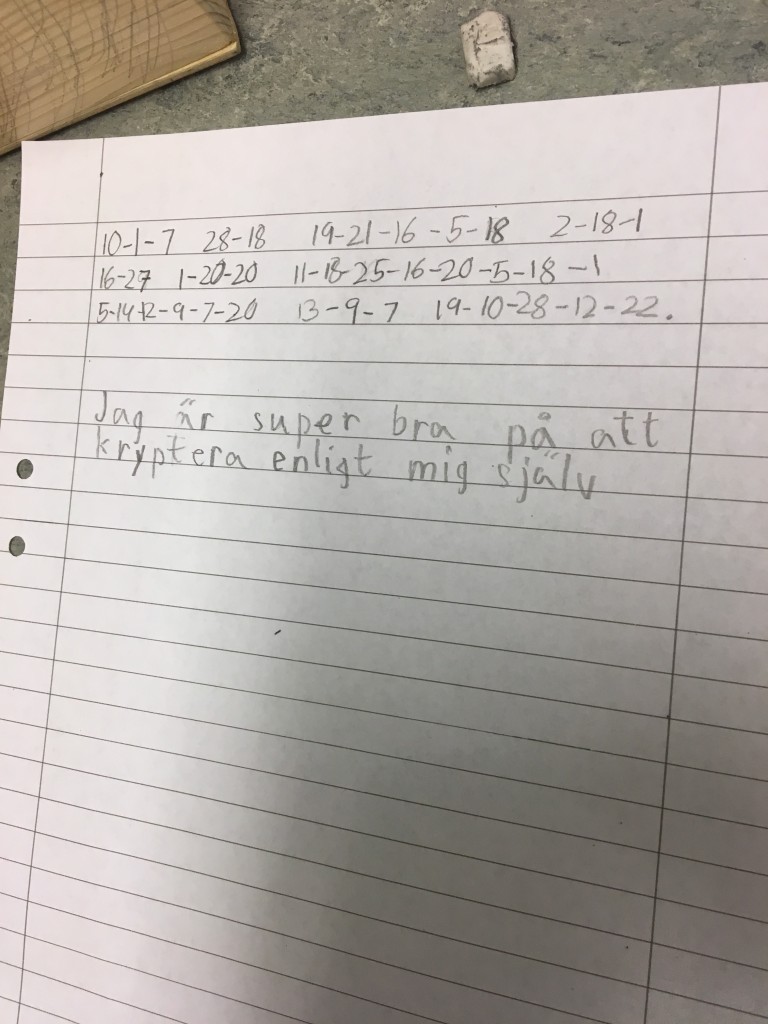 10-1-7 28-18 19-21-16-5-18 2-18-1
16-27 1-20-20 11-18-25-16-20-5-18-1
5-14-12-9-7-20 13-9-7 19-10-28-12-22.
Jag är super bra på att
kryptera enligt mig själv